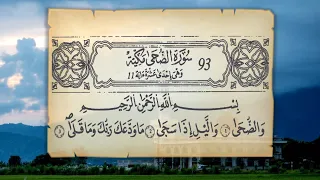 سُورَةُ الضُّحَى مَكِّيَّة 93
وَهِيَ إِحْدَى عَشْرَةَ آيَة ١١
بِسْمِ اللَّهِ الرَّحْمَٰنِ الرَّحِيمِ
وَالضُّحَىٰ ۝١ وَاللَّيْلِ إِذَا سَجَىٰ ۝٢ مَا وَدَّعَكَ رَبُّكَ وَمَا قَلَىٰ ۝٣